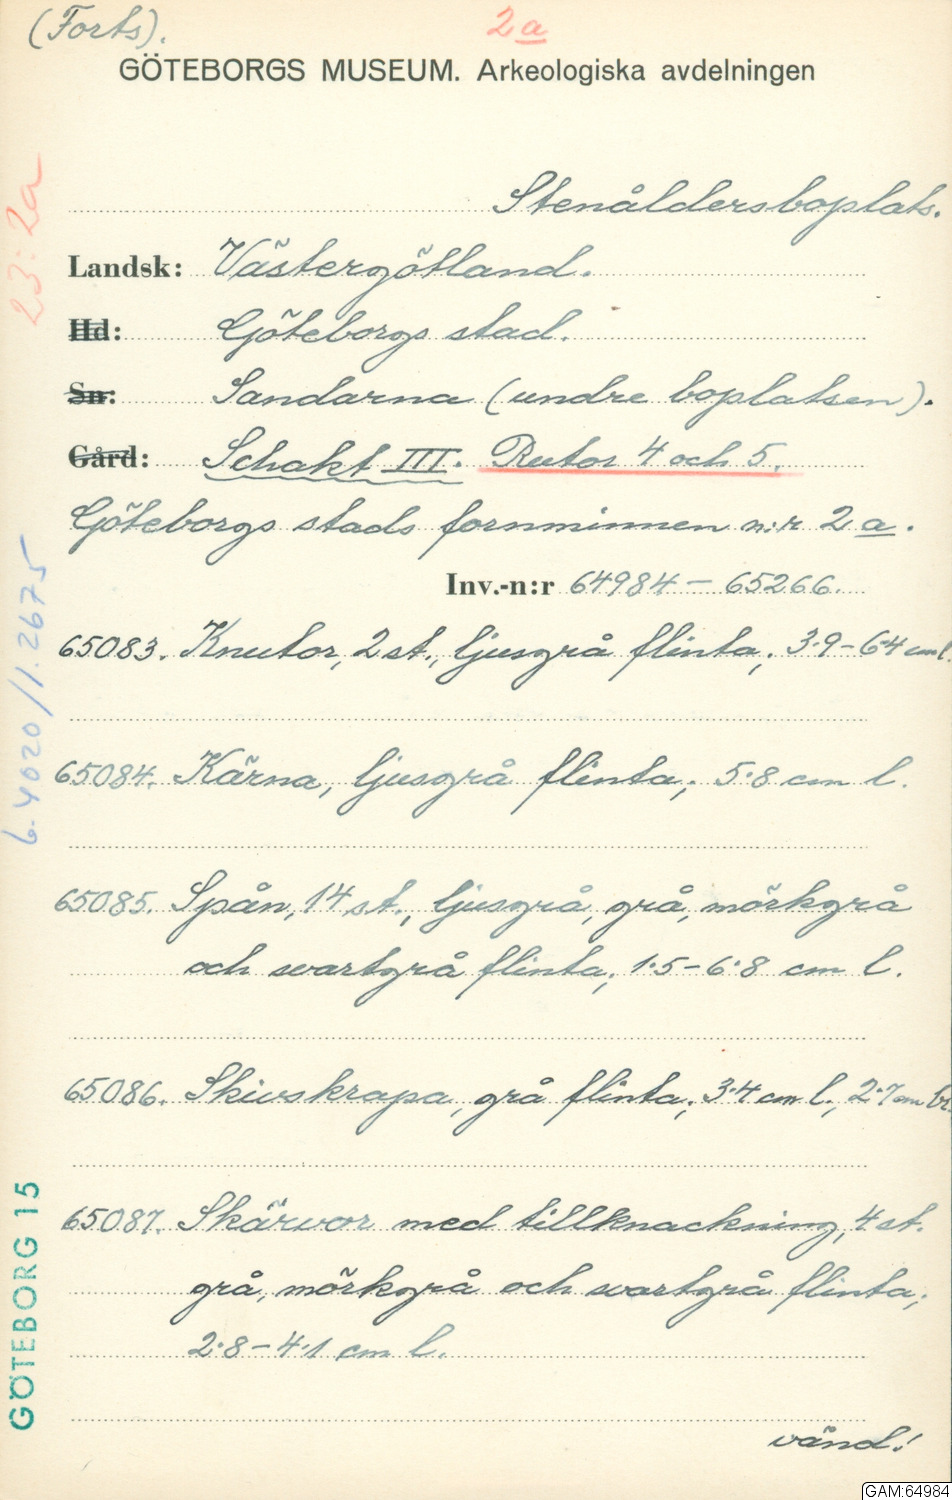 (Forts). 2a
GÖTEBORGS MUSEUM. Arkeologiska avdelningen
Stenåldersboplats.
Landsk: Västergötland.
Hd: Göteborgs stad.
Sn: Sandarna (undre boplatsen).
Gård: Schakt III. Rutor 4 och 5.
Göteborgs stads fornminnen n:r 2 a.
Inv.-n:r 64984 – 65266.
65083. Knutor, 2 st., ljusgrå flinta; 3·9 – 6·4 cm l.
65084. Kärna, ljusgrå flinta; 5·8 cm l.
65085. Spån, 14 st., ljusgrå, grå, mörkgrå
och svartgrå flinta; 1·5 – 6·8 cm l.
65086. Skivskrapa, grå flinta; 3·4 cm l., 2·7 cm br.
65087. Skärvor med tillknackning, 4 st.
grå, mörkgrå och svartgrå flinta;
2·8 – 4·1 cm l.
vänd!
23:2a
6.4020/1.2675
GÖTEBORG 15
GAM:64984